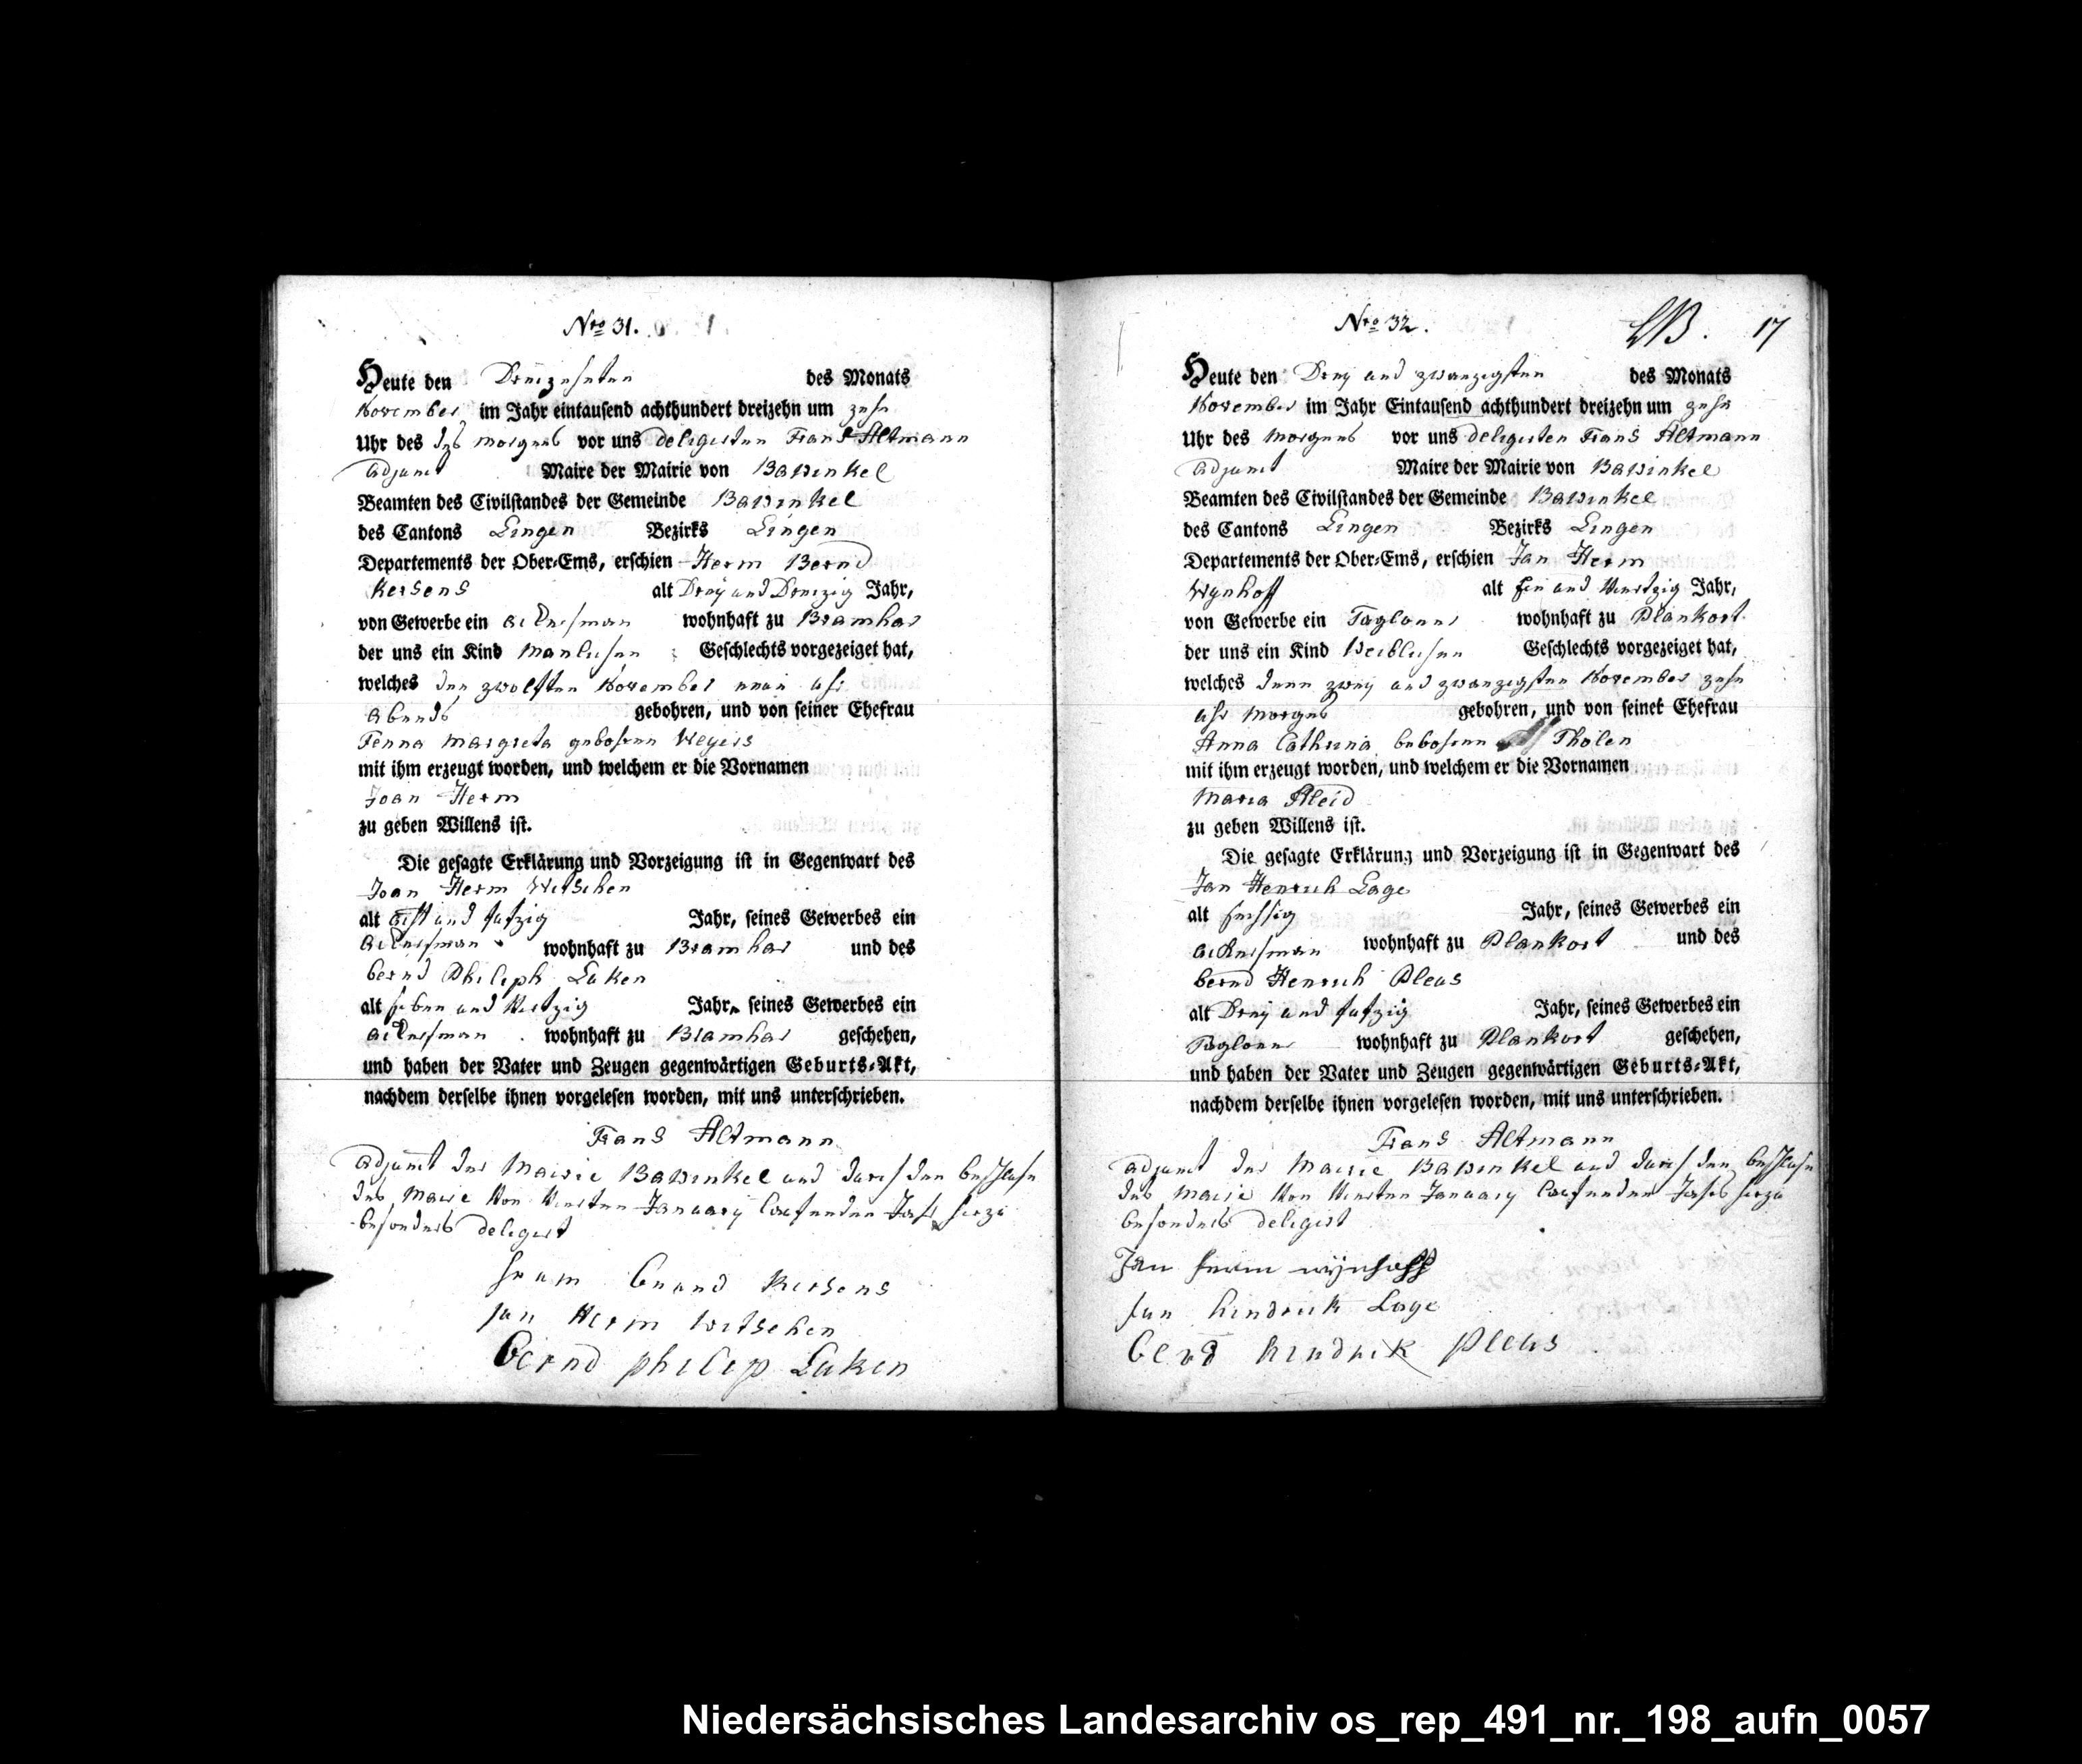 Nro 31.
Heute den Dreizehnten des Monats
November im Jahr eintausend achthundert dreizehn um zehn
Uhr des des morgens vor uns deligirten Frans Altmann
adjunct Maire der Mairie von Bawinkel
Beamten des Civilstandes der Gemeinde Bawinkel
des Cantons Lingen Bezirks Lingen
Departements der Ober-Ems, erschien Herm Bernd
Kersens alt Dreij und Dreizig Jahr,
von Gewerbe ein ackersman wohnhaft zu Bramhar
der uns ein Kind manlichen Geschlechts vorgezeiget hat,
welches den zwolften November neun uhr
abends gebohren, und von seiner Ehefrau
Fenna margreta gebohren Weyers
mit ihm erzeugt worden, und welchem er die Vornamen
Joan Herm
zu geben Willens ist.
Die gesagte Erklärung und Vorzeigung ist in Gegenwart des
Joan Herm Wetschen
alt acht und fufzig Jahr, seines Gewerbes ein
ackersman wohnhaft zu Bramhar und des
bernd Philiph Luken
alt sieben und Vertzig Jahr, seines Gewerbes ein
ackersman wohnhaft zu Bramhar geschehen,
und haben der Vater und Zeugen gegenwärtigen Geburts-Akt,
nachdem derselbe ihnen vorgelesen worden, mit uns unterschrieben.
Frans Altmann
adjunct der Mairie Bawinkel und durch den beschluss
des Maire Von Vierten January laufenden Jahr hierzu
besonders deligirt
herm Berend Kersens
Jan Herm Wetschen
Bernd philip Luken
Nro 32. 17
Heute den Dreij und zwanzigsten des Monats
November im Jahr Eintausend achthundert dreizehn um zehn
Uhr des morgens vor uns deligirten Frans Altmann
adjunct Maire der Mairie von Bawinkel
Beamten des Civilstandes der Gemeinde Bawinkel
des Cantons Lingen Bezirks Lingen
Departements der Ober-Ems, erschien Jan Herm
Wynhoff alt Ein und Viertzig Jahr,
von Gewerbe ein Taglonner wohnhaft zu Plankort
der uns ein Kind Weiblichen Geschlechts vorgezeiget hat,
welches denn zweij und zwanzigsten November zehn
uhr morgens gebohren, und von seiner Ehefrau
Anna Cathrina bebohren Tholen
mit ihm erzeugt worden, und welchem er die Vornamen
Maria Aleid
zu geben Willens ist.
Die gesagte Erklärung und Vorzeigung ist in Gegenwart des
Jan Henrich Lage
alt sechsig Jahr, seines Gewerbes ein
ackersman wohnhaft zu Plankort und des
bernd Henrich Pleus
alt Dreij und fufzig Jahr, seines Gewerbes ein
Taglonner wohnhaft zu Plankort geschehen,
und haben der Vater und Zeugen gegenwärtigen Geburts-Akt,
nachdem derselbe ihnen vorgelesen worden, mit uns unterschrieben.
Frans Altmann
adjunct der Mairie Bawinkel und durch den beschluss
des Maire Von Vierten January laufenden Jahrs hierzu
besonders deligirt
Jan herm wijnhoff
Jan hindrick Lage
Bernd hindrik Pleus
Niedersächsisches Landesarchiv os_rep_491_nr._198_aufn_0057